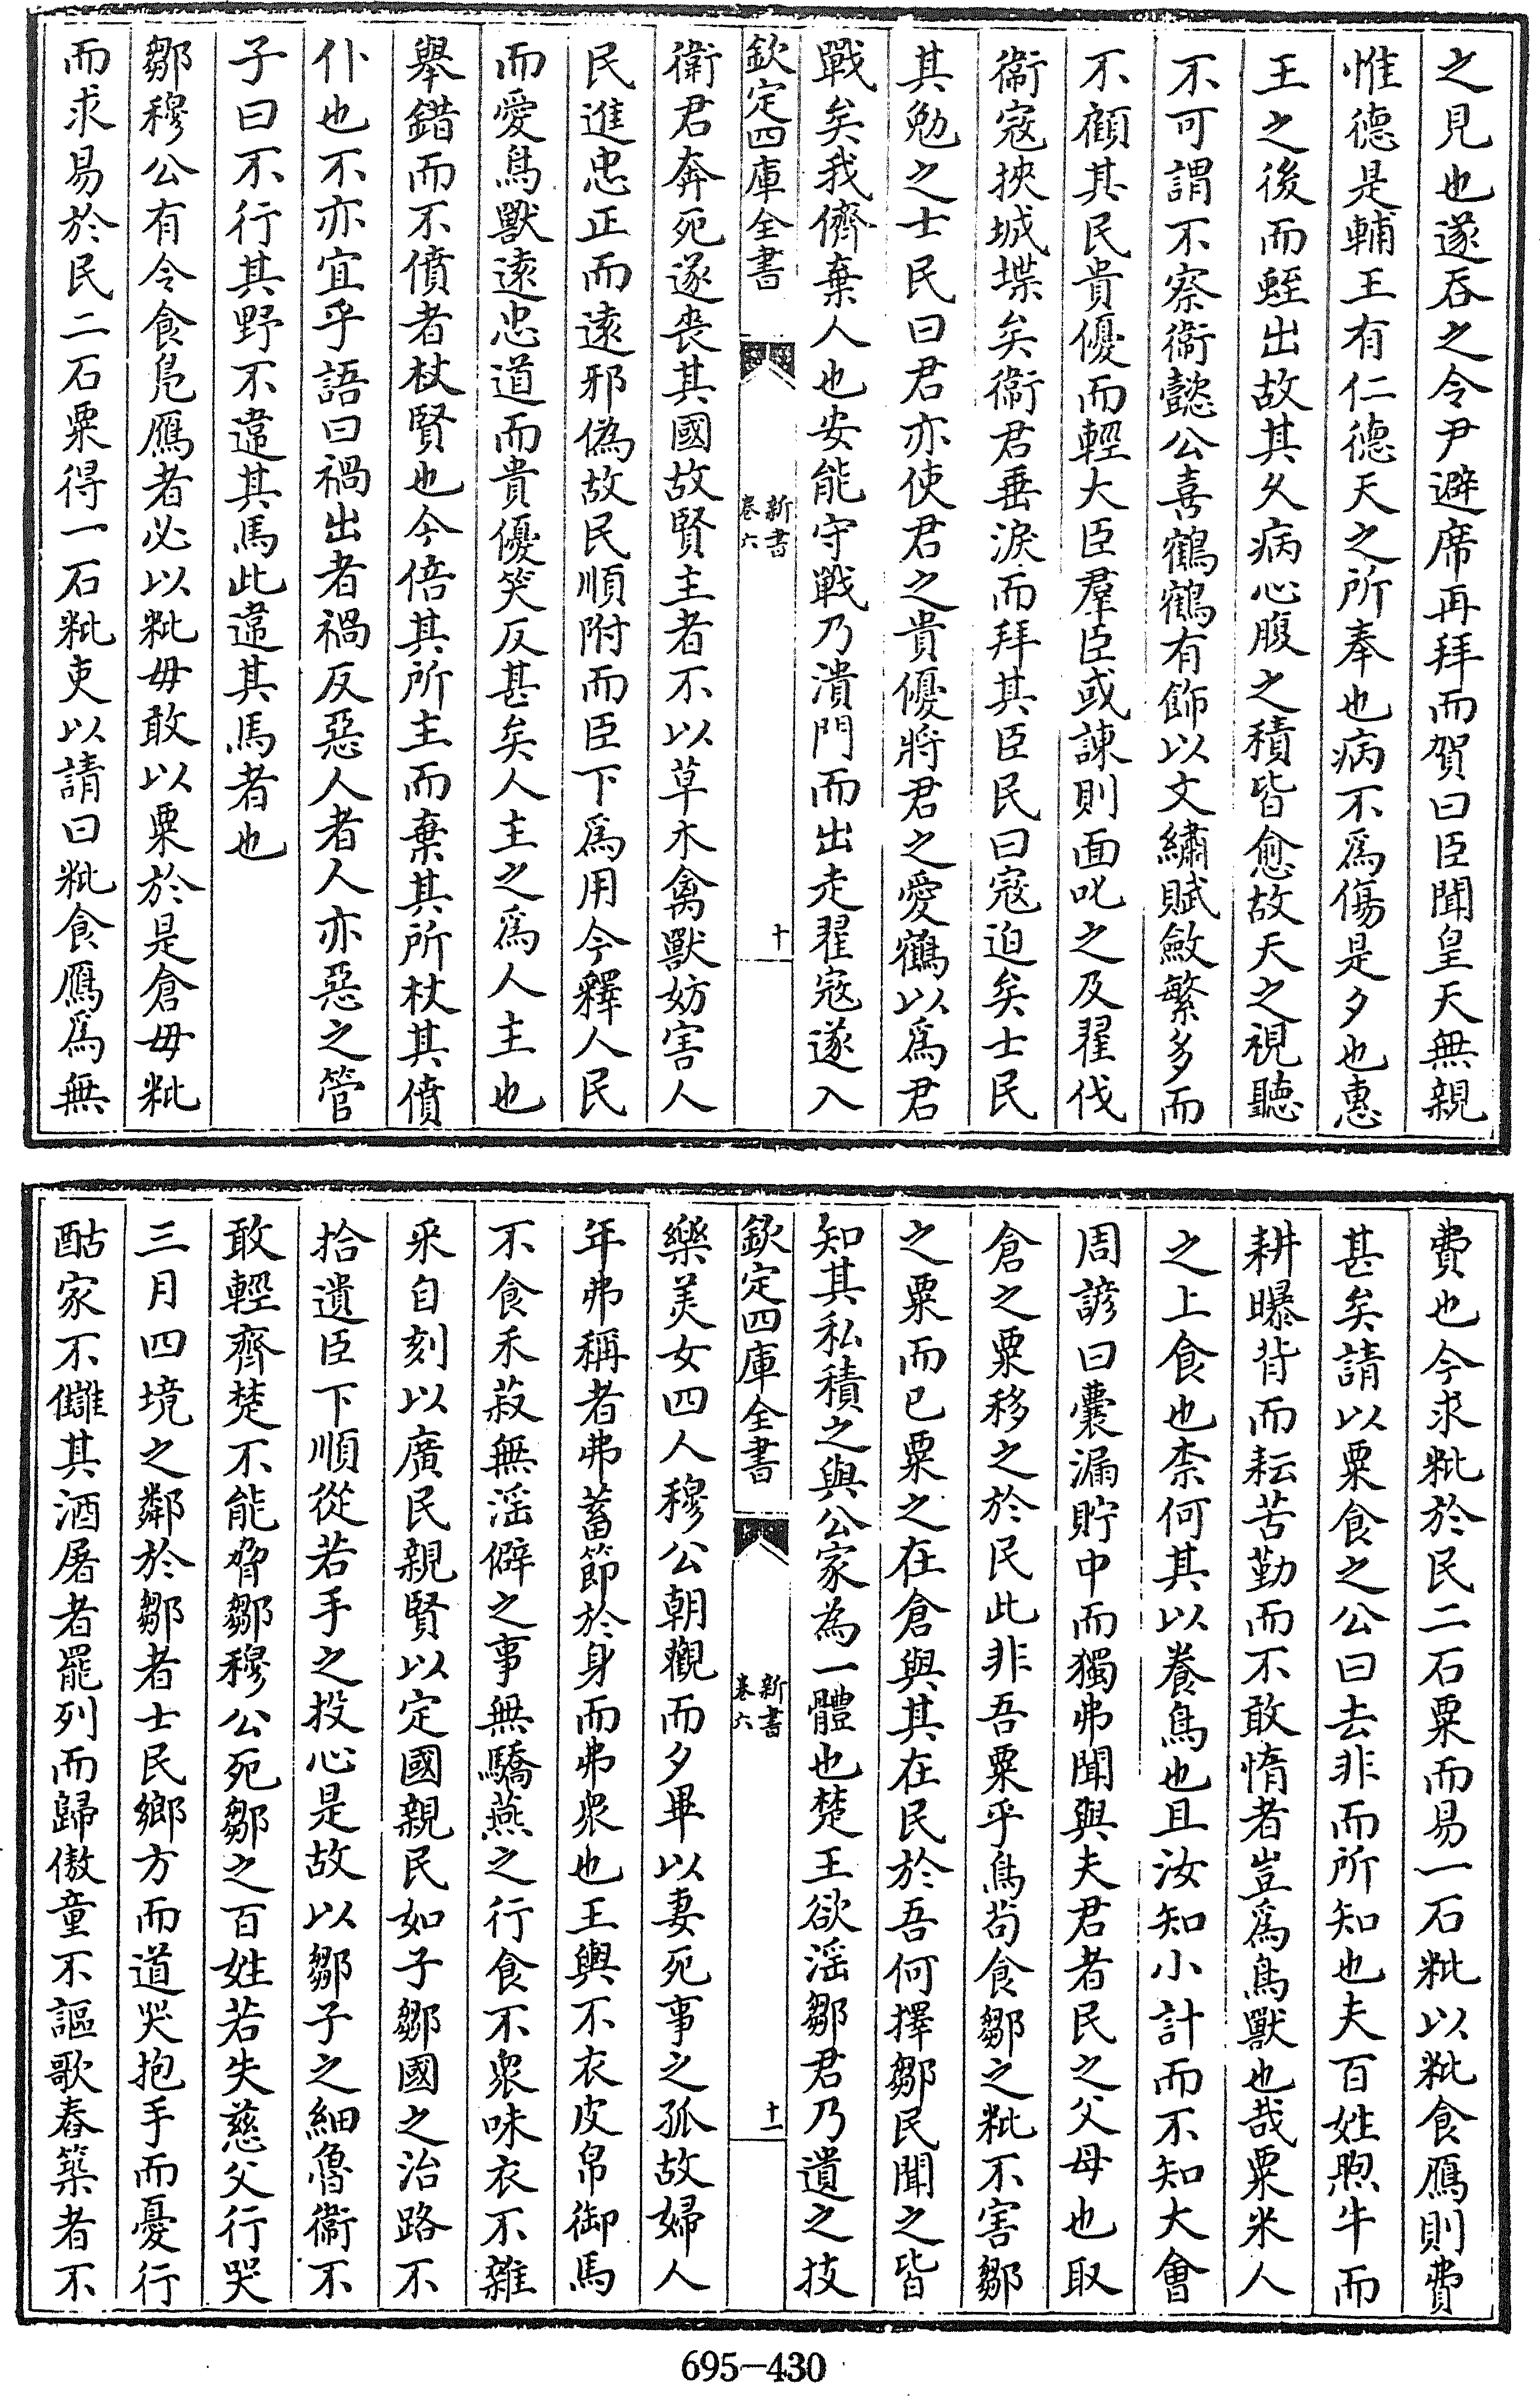 之見也遂吞之令尹避席再拜而賀曰臣聞皇天無親
惟德是輔王有仁德天之所奉也病不爲傷是夕也惠
王之後而蛭出故其久病心腹之積皆愈故天之視聽
不可謂不察衞懿公喜鶴鶴有飾以文繡賦斂繁多而
不顧其民貴優而輕大臣羣臣或諫則面叱之及翟伐
衞寇挾城堞矣衞君垂淚而拜其臣民曰寇迫矣士民
其勉之士民曰君亦使君之貴優將君之愛鶴以爲君
戰矣我儕棄人也安能守戰乃潰門而出走翟寇遂入
欽定四庫全書
新書
卷六
十
衞君奔死遂喪其國故賢主者不以草木禽獸妨害人
民進忠正而遠邪偽故民順附而臣下爲用今釋人民
而愛鳥獸遠忠道而貴優笑反甚矣人主之爲人主也
舉錯而不僨者杖賢也今倍其所主而棄其所杖其僨
仆也不亦宜乎語曰禍出者禍反惡人者人亦惡之管
子曰不行其野不違其馬此違其馬者也
鄒穆公有令食鳧鴈者必以粃毋敢以粟於是倉毋粃
而求易於民二石粟得一石粃吏以請曰粃食鴈爲無
費也今求粃於民二石粟而易一石粃以粃食鴈則費
甚矣請以粟食之公曰去非而所知也夫百姓煦牛而
耕曝背而耘苦勤而不敢惰者豈爲鳥獸也哉粟米人
之上食也柰何其以養鳥也且汝知小計而不知大會
周諺曰囊漏貯中而獨弗聞與夫君者民之父母也取
倉之粟移之於民此非吾粟乎鳥苟食鄒之粃不害鄒
之粟而已粟之在倉與其在民於吾何擇鄒民聞之皆
知其私積之與公家為一體也楚王欲淫鄒君乃遺之技
欽定四庫全書
新書
卷六
十一
樂美女四人穆公朝觀而夕畢以妻死事之孤故婦人
年弗稱者弗蓄節於身而弗衆也王輿不衣皮帛御馬
不食禾菽無淫僻之事無驕燕之行食不衆味衣不雜
采自刻以廣民親賢以定國親民如子鄒國之治路不
拾遺臣下順從若手之投心是故以鄒子之細魯衞不
敢輕齊楚不能脅鄒穆公死鄒之百姓若失慈父行哭
三月四境之鄰於鄒者士民鄉方而道哭抱手而憂行
酤家不讎其酒屠者罷列而歸傲童不謳歌舂築者不
695-430